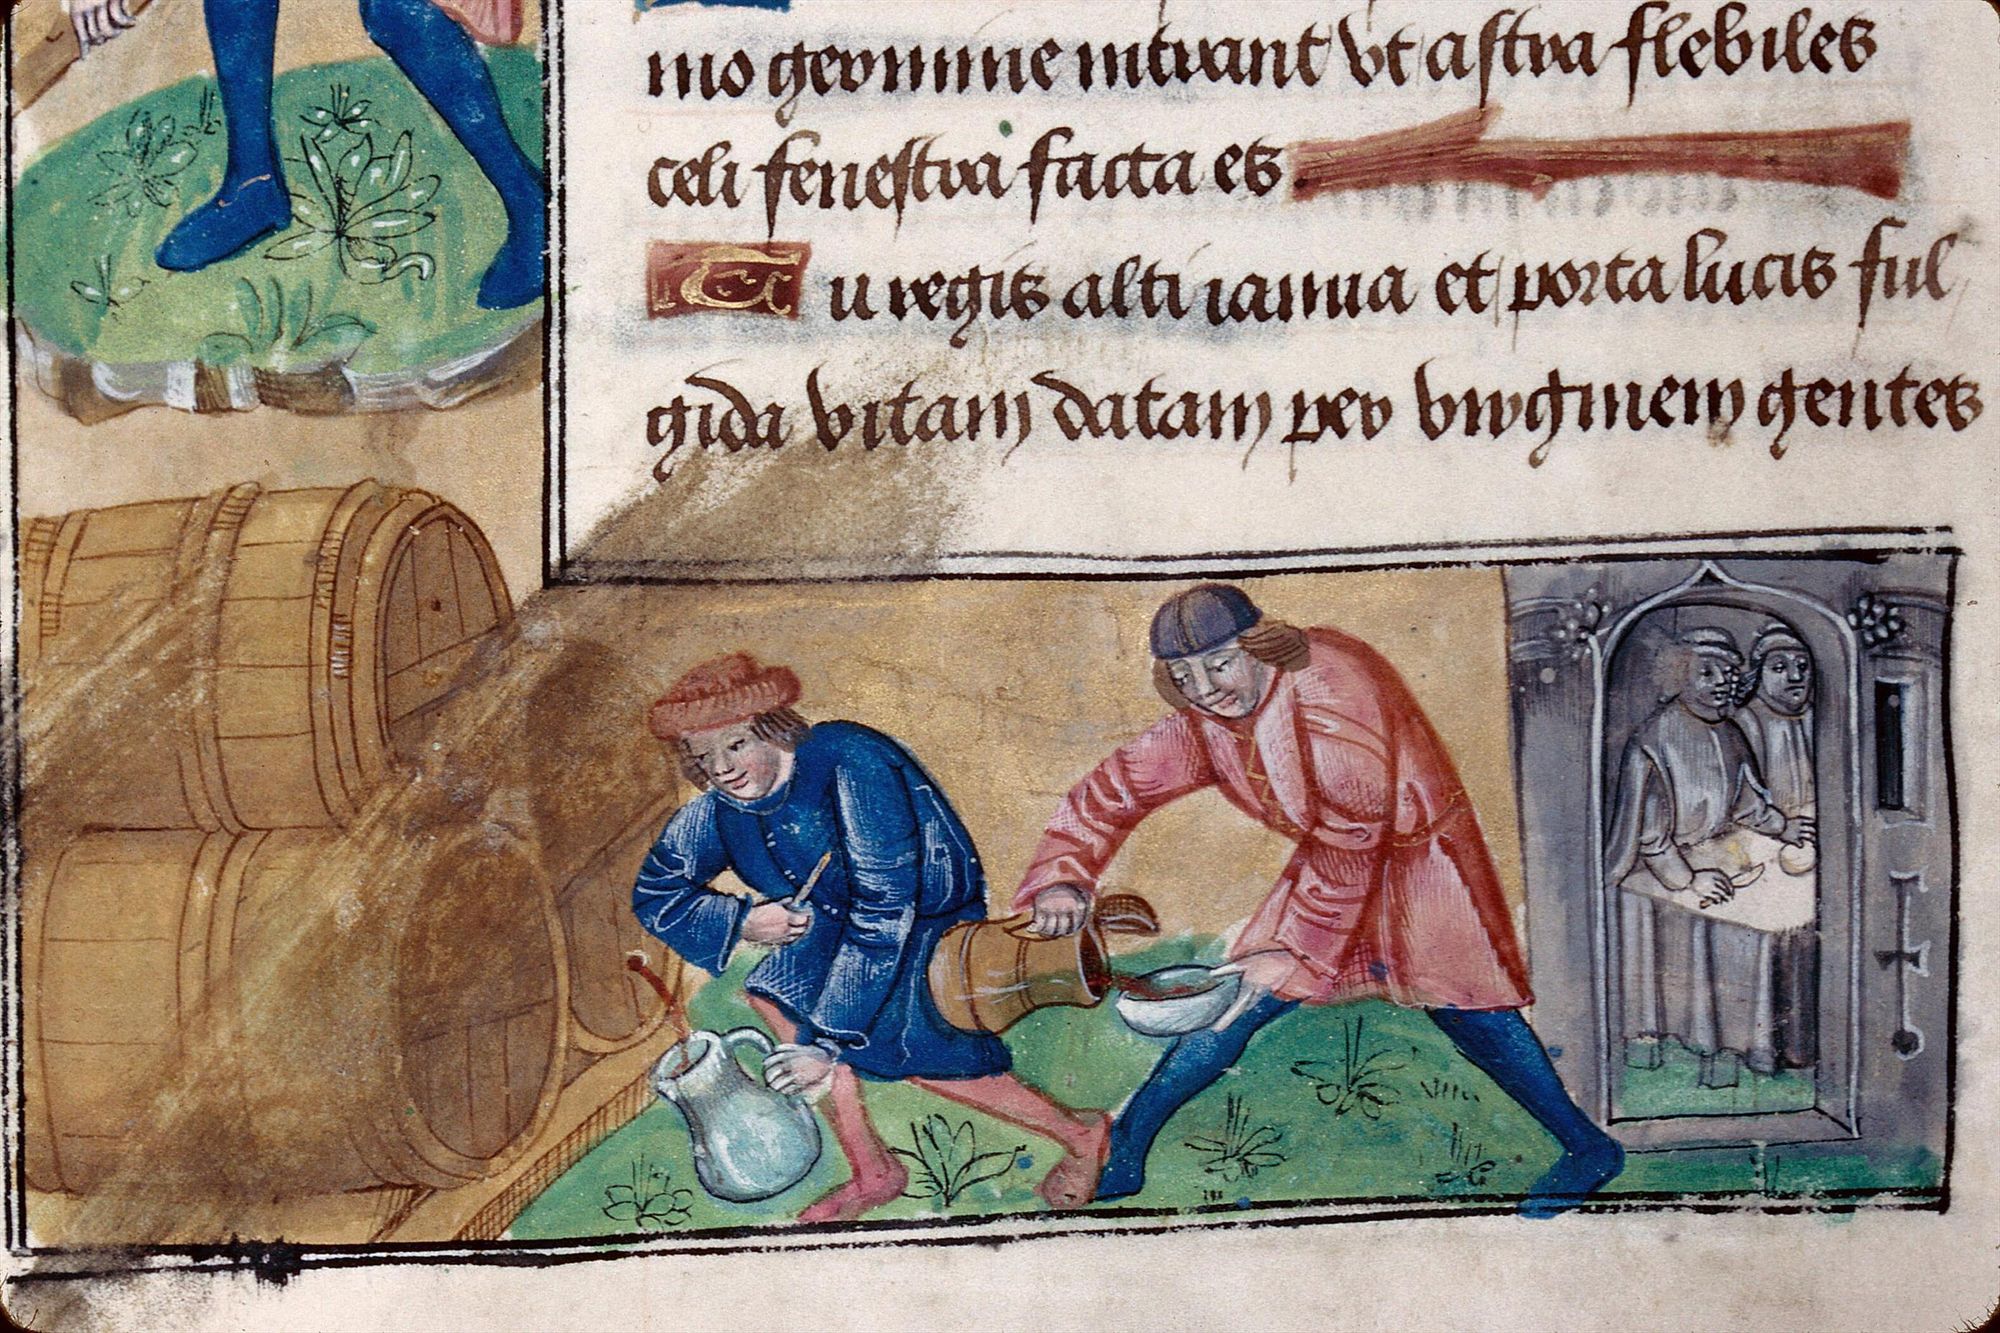 mo germine intrant vt astra flebiles
celi fenestra facta es
Tu regis alti ianua et porta lucis ful
gida vitam datam per virginem gentes